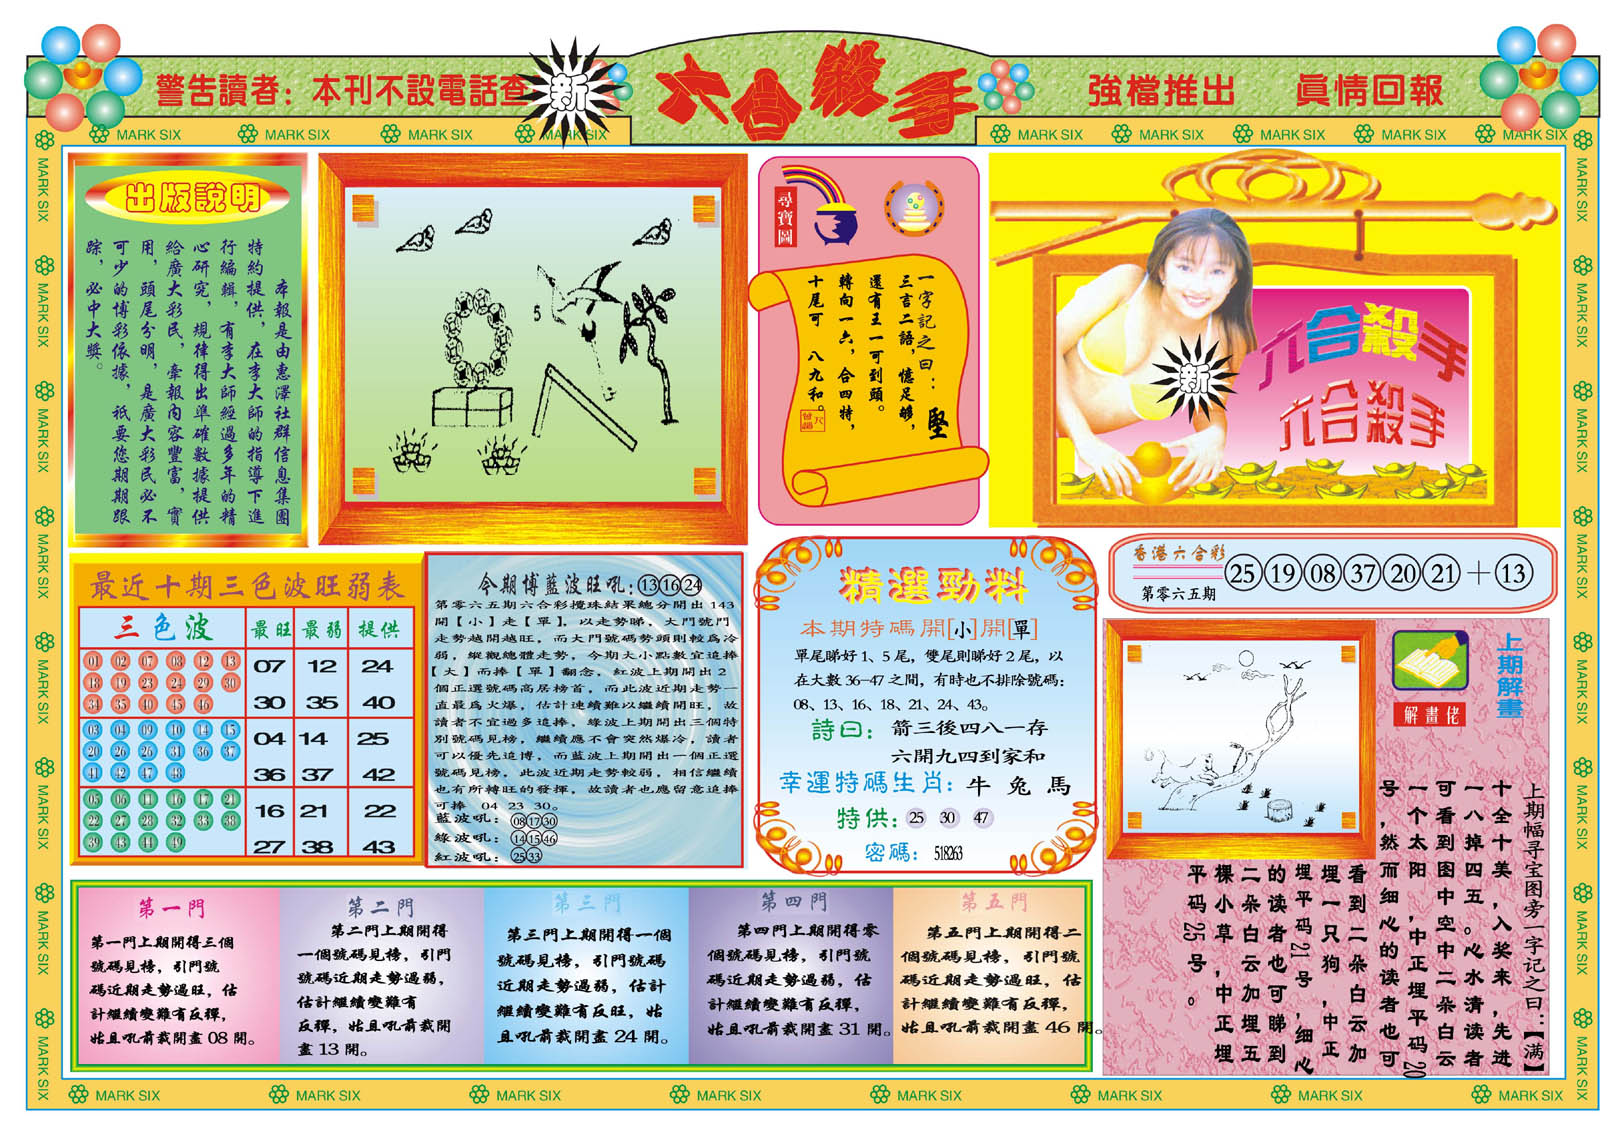 警告讀者：本刊不設電話查
新
六合殺手
強檔推出 眞情回報
MARK SIX MARK SIX MARK SIX MARK SIX
MARK SIX MARK SIX MARK SIX MARK SIX MARK SIX
出版說明
本報是由惠澤社群信息集團
特約提供，在李大師的指導下進
行編輯，有李大師經過多年的精
心研究，規律得出準確數據提供
給廣大彩民，牽報內容豐富，實
用，頭尾分明，是廣大彩民必不
可少的博彩依據，祇要您期期跟
踪，必中大獎。
5
尋寶圖
一字記之曰：堅
三言二語，憶足夠，
還有王一可到頭。
轉向一六，合四特，
十尾可 八九和。
六合殺手
六合殺手
新
香港六合彩
第零六五期
25 19 08 37 20 21 + 13
最近十期三色波旺弱表
三色波 最旺 最弱 提供
01 02 07 08 12 13
18 19 23 24 29 30
34 35 40 45 46
07 12 24
30 35 40
03 04 09 10 14 15
20 26 25 31 36 37
41 42 47 48
04 14 25
36 37 42
05 06 11 16 17 21
22 27 28 32 33 38
39 43 44 49
16 21 22
27 38 43
今期博藍波旺吼：13 16 24
第零六五期六合彩攪珠結果總分開出 143
開【小】走【單】，以走勢睇，大門號門
走勢越開越旺，而大門號碼勢頭則較為冷
弱，縱觀總體走勢，今期大小點數宜追捧
【大】而捧【單】翻念，紅波上期開出 2
個正選號碼高居榜首，而此波近期走勢一
直最為火爆，估計連續難以繼續開旺，故
讀者不宜過多追捧，綠波上期開出三個特
別號碼見榜，繼續應不會突然爆冷，讀者
可以優先追博，而藍波上期開出一個正選
號碼見榜，此波近期走勢較弱，相信繼續
也有所轉旺的發揮，故讀者也應留意追捧
可捧 04 23 30。
藍波吼：08 17 30
綠波吼：14 15 46
紅波吼：25 33
精選勁料
本期特碼開[小]開[單]
單尾睇好 1、5 尾，雙尾則睇好 2 尾，以
在大數 36-47 之間，有時也不排除號碼：
08、13、16、18、21、24、43。
詩曰：箭三後四八一存
六開九四到家和
幸運特碼生肖：牛 兔 馬
特供：25 30 47
密碼：518263
上期解畫
解畫佬
上期幅寻宝图旁一字记之曰：【满】
十全十美，入奖来，先进
一八掉四五。心水清读者
可看到图中空中二朵白云
一个太阳，中正埋平码20
号，然而细心的读者也可
看到二朵白云加
埋一只狗，中正
埋平码21号，细心
的读者也可睇到
二朵白云加埋五
棵小草，中正埋
平码25号。
第一門
第一門上期開得三個
號碼見榜，引門號
碼近期走勢過旺，估
計繼續變難有反彈，
姑且吼前裁開盡 08 開。
第二門
第二門上期開得
一個號碼見榜，引門
號碼近期走勢過弱，
估計繼續變難有
反彈，姑且吼前裁開
盡 13 開。
第三門
第三門上期開得一個
號碼見榜，引門號碼
近期走勢過弱，估計
繼續變難有反旺，姑
且吼前裁開盡 24 開。
第四門
第四門上期開得零
個號碼見榜，引門號
碼近期走勢過弱，估
計繼續變難有反彈，
姑且吼前裁開盡 31 開。
第五門
第五門上期開得二
個號碼見榜，引門號
碼近期走勢過旺，估
計繼續變難有反彈，
姑且吼前裁開盡 46 開。
MARK SIX MARK SIX MARK SIX MARK SIX MARK SIX MARK SIX MARK SIX MARK SIX
MARK SIX MARK SIX MARK SIX MARK SIX MARK SIX MARK SIX MARK SIX MARK SIX
MARK SIX MARK SIX MARK SIX MARK SIX MARK SIX MARK SIX MARK SIX MARK SIX